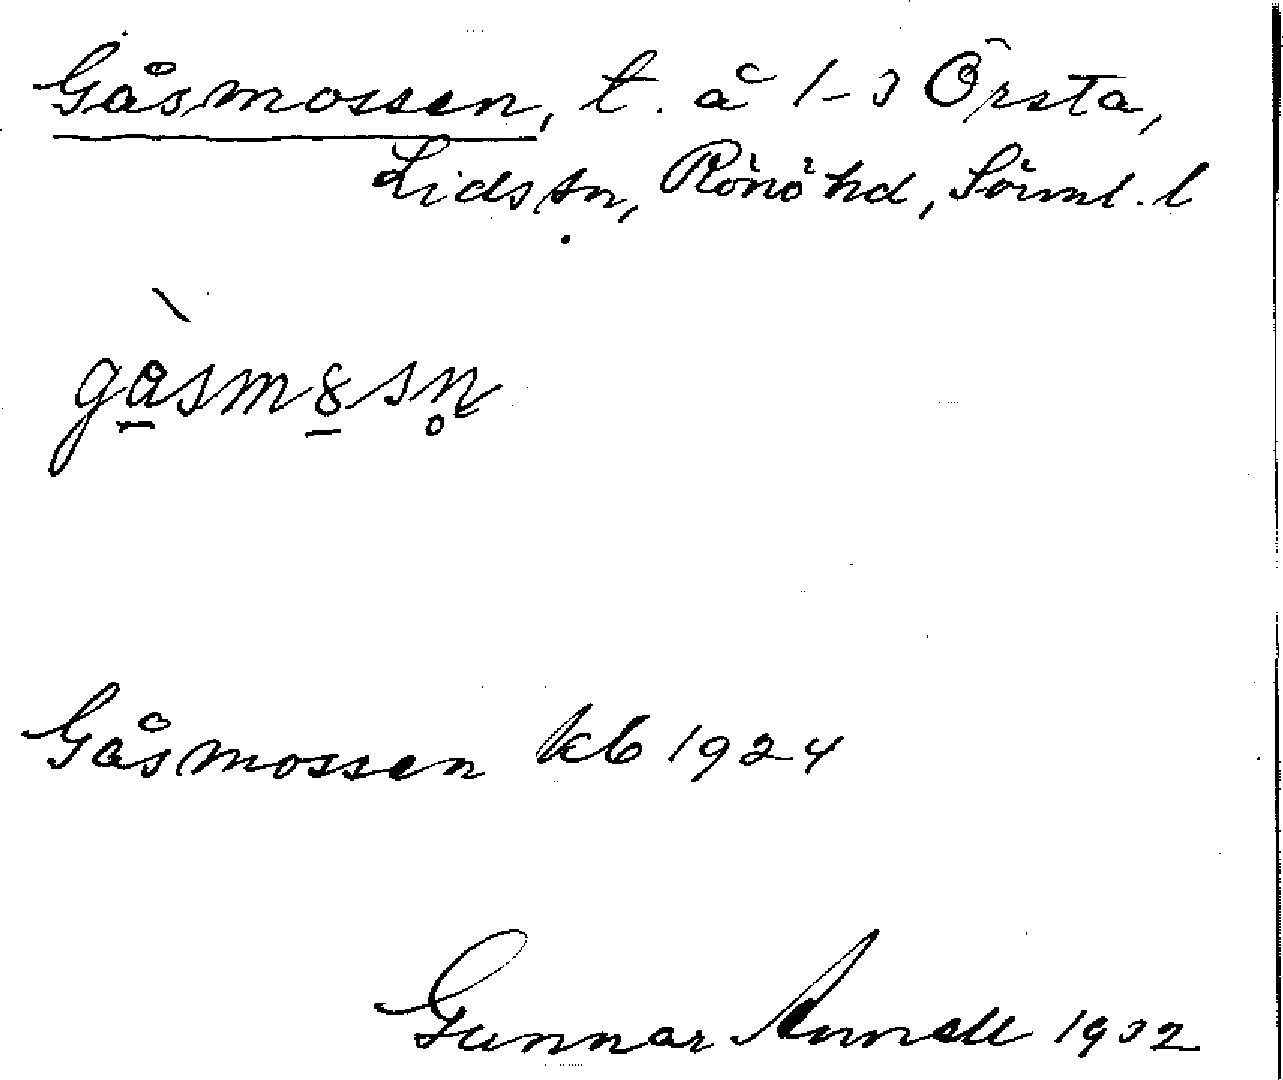 Gåsmossen, t. å 1-3 Örsta,
Lids sn, Rönö hd, Sörml. l
gåsmȣsn̥
Gåsmossen kb 1924
Gunnar 1932